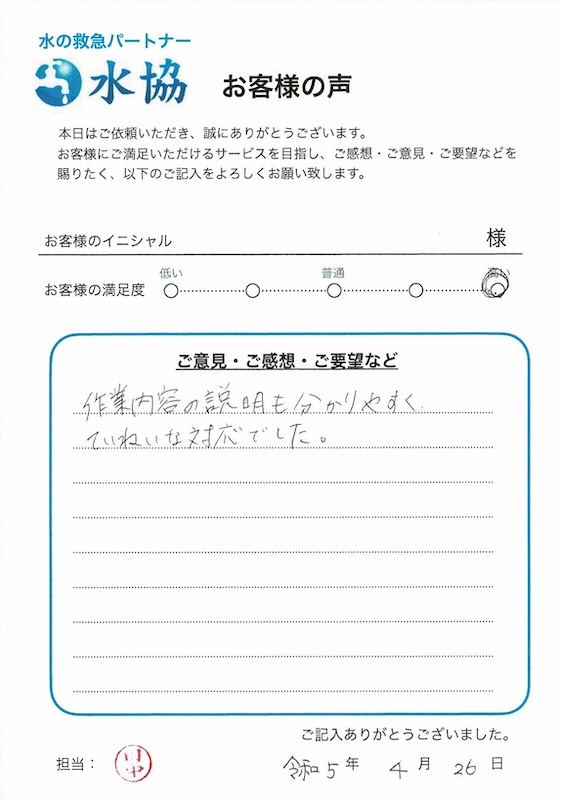 水の救急パートナー
水協 お客様の声
本日はご依頼いただき、誠にありがとうございます。
お客様にご満足いただけるサービスを目指し、ご感想・ご意見・ご要望などを
賜りたく、以下のご記入をよろしくお願い致します。
お客様のイニシャル 様
低い 普通
お客様の満足度
ご意見・ご感想・ご要望など
作業内容の説明も分かりやすく
ていねいな対応でした。
ご記入ありがとうございました。
担当： 令和5年 4月 26日